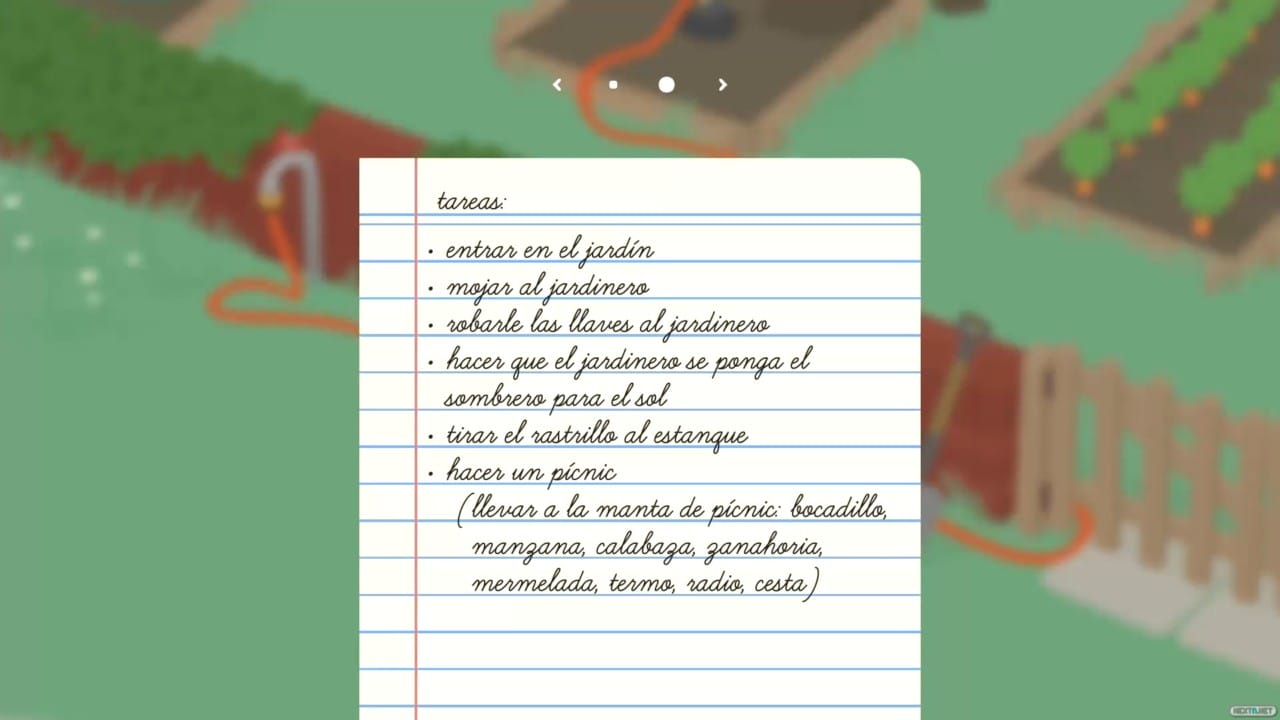 tareas:
• entrar en el jardín
• mojar al jardinero
• robarle las llaves al jardinero
• hacer que el jardinero se ponga el
sombrero para el sol
• tirar el rastrillo al estanque
• hacer un pícnic
(llevar a la manta de pícnic: bocadillo,
manzana, calabaza, zanahoria,
mermelada, termo, radio, cesta)
NEXTN.NET